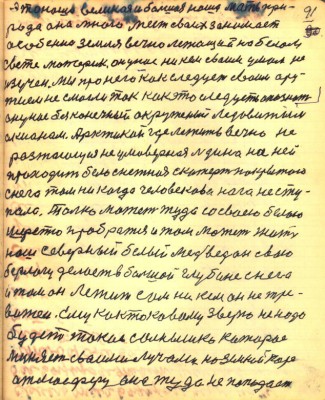 91
Эта наша великая и большая наша мать при-
рода она много мест своих занимает
особенно земля вечно лежащий на белом
свете материк, он у нас ни кем своим умом не
изучен. Мы про него как следует своим ору-
жием не смогли так как это следует опознать
он у нас бя конечный окружоный Ледовитым
океаном. Арктикой где лежить вечно не
растающая не умоверная льдина на ней
проходит бело снежная скатерть покрытого
снега там никогда человекова нага не сту-
пала. Толко может туда со своею белою
шерстю пробратя и там может жить
наш северный белый медведь он свою
берлогу делает в большой глубине снега
и там он лежит сам ни кем он не тре-
вожен. Ему как таковому зверю не надо
будет такая солнышка которое
меняет своими лучами на зимний
атмосферу она туда не попадает